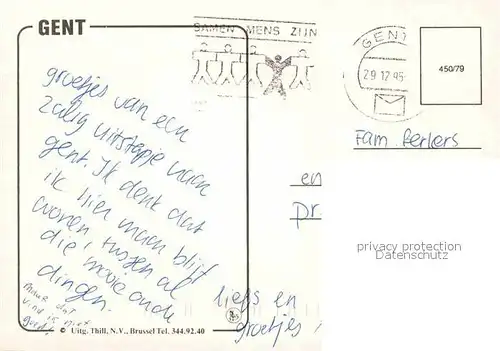 GENT
SAMEN MENS ZIJN
GENT
29 12 95
450/79
groetjes van een
zalig uitstapje naar
gent. Ik denk dat
ik hier maar blijf
wonen, tussen al
die mooie oude
dingen.
maar dat
vind ik niet
Fam.
en
pr
privacy protection
Datenschutz
liefs en
groetjes
© Uitg. Thill, N.V., Brussel Tel. 344.92.40